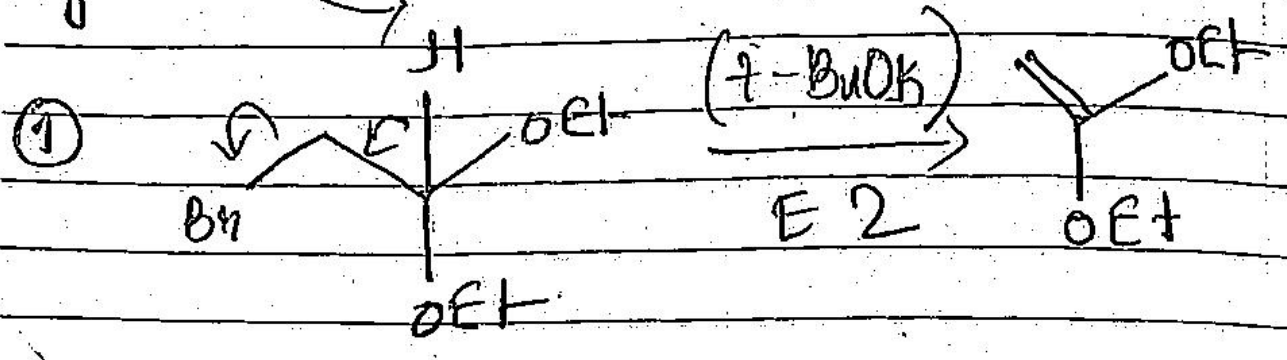 H
① Br OEt OEt (t-BuOK) E2 OEt OEt